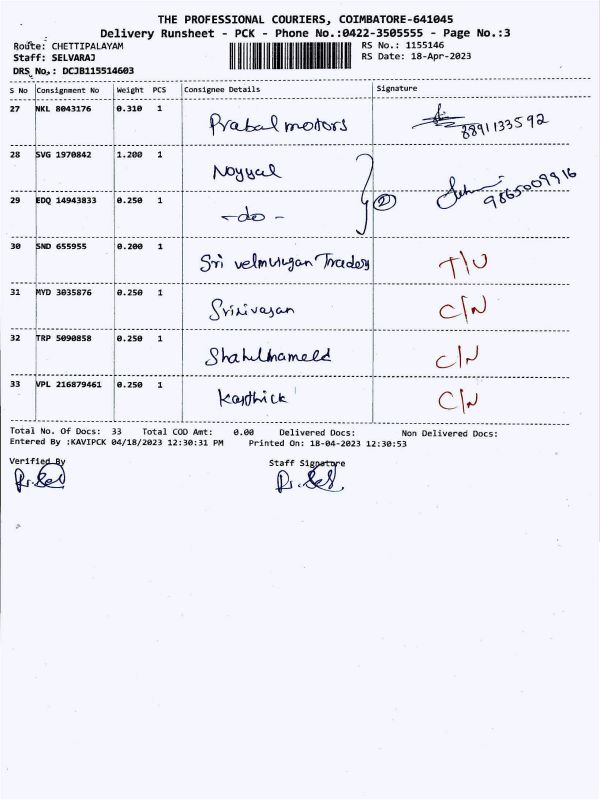 THE PROFESSIONAL COURIERS, COIMBATORE-641045
Delivery Runsheet - PCK - Phone No.:0422-3505555 - Page No.:3
Route: CHETTIPALAYAM RS No.: 1155146
Staff: SELVARAJ RS Date: 18-Apr-2023
DRS No.: DCJB115514603
S No Consignment No Weight PCS Consignee Details Signature
27 NKL 8043176 0.310 1 Prabal motors 8891133592
28 SVG 1970842 1.200 1 Noyyal
29 EDQ 14943833 0.250 1 -do- 2 9865009916
30 SND 655955 0.200 1 Sri velmurugan Traders T/U
31 MYD 3035876 0.250 1 Srinivasan C/N
32 TRP 5090858 0.250 1 Shahulhameed C/N
33 VPL 216879461 0.250 1 Karthick C/N
Total No. Of Docs: 33 Total COD Amt: 0.00 Delivered Docs: Non Delivered Docs:
Entered By :KAVIPCK 04/18/2023 12:30:31 PM Printed On: 18-04-2023 12:30:53
Verified By Staff Signature